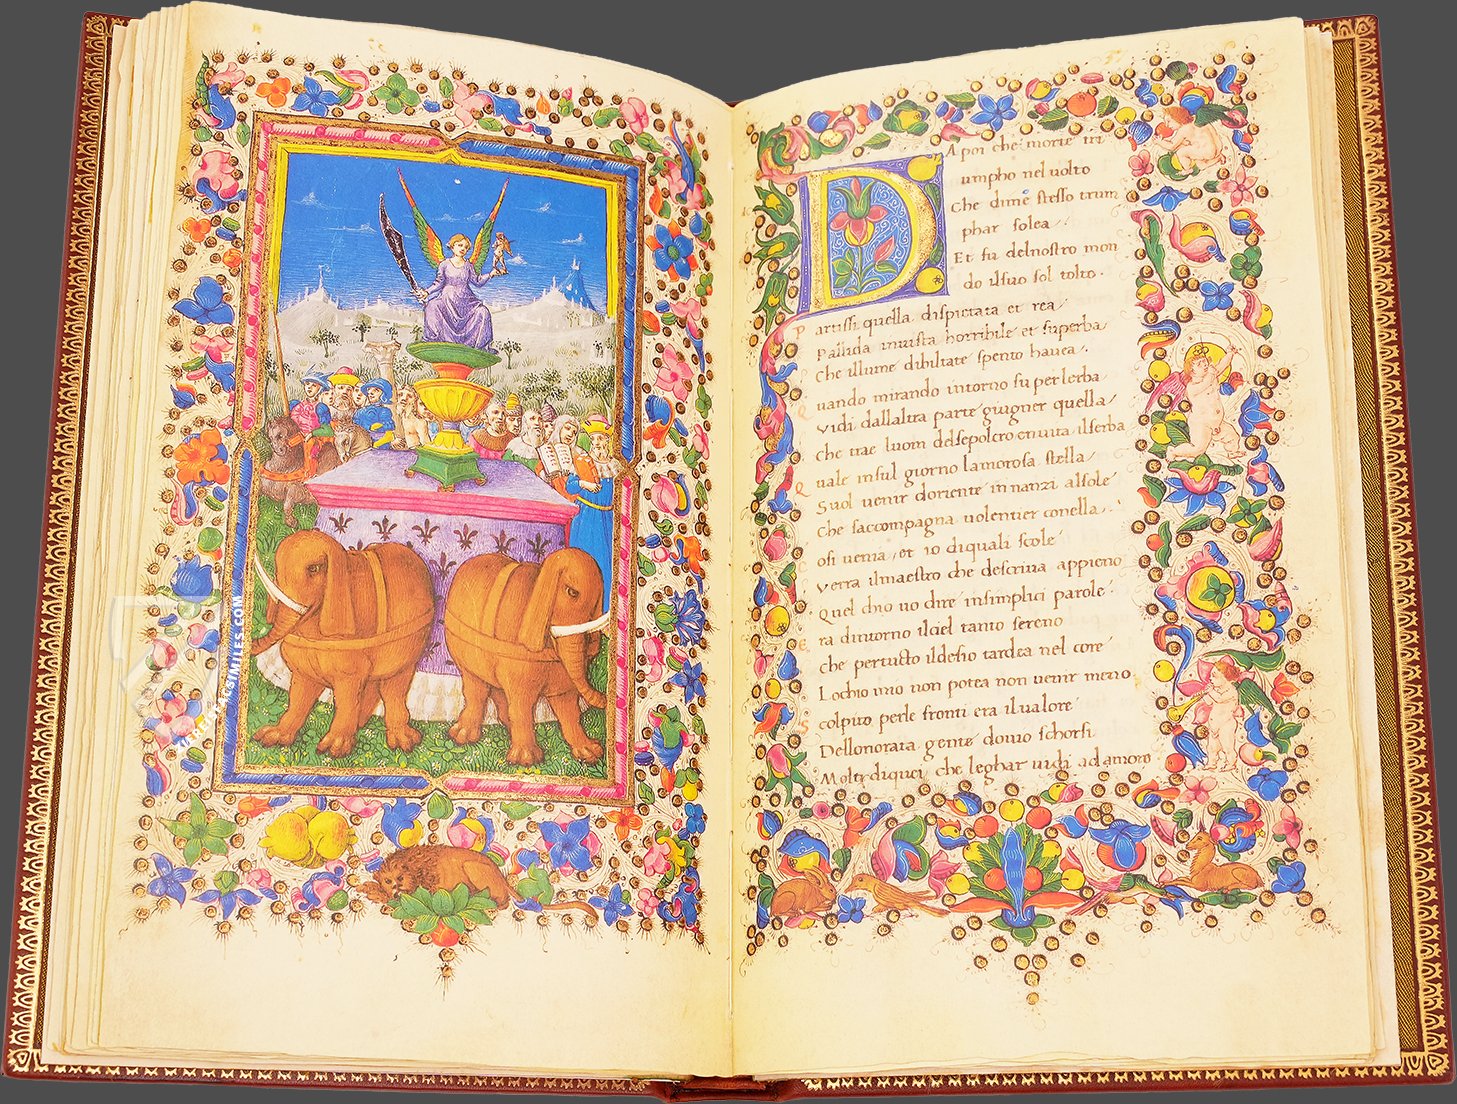 FACSIMILES.COM
DA poi che morte tri
umpho nel uolto
Che dime stesso trium
phar solea
Et fu delnostro mon
do ilsuo sol tolto
Partissi quella dispietata et rea
Pallida inuista horribile et superba
Che illume dibiltate spento hauea
Quando mirando intorno su perlerba
Vidi dallaltra parte giugner quella
Che trae luom delsepolcro enuita ilserba
Quale insul giorno lamorosa stella
Suol uenir doriente innanzi alsole
Che saccompagna uolentier conella
Cosi uenia, et io diquali scole
Verra ilmaestro che descriua appieno
Quel chio uo dire insimplici parole
Era dintorno ilciel tanto sereno
che pertutto ildesio tardea nel core
Lochio mio non potea non uenir meno
Scolpito perle fronti era ilualore
Dellonorata gente douio schorsi
Molti diquei che leghar uidi ad amore